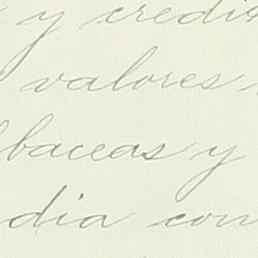 y credi
valores
baceas y
dia con